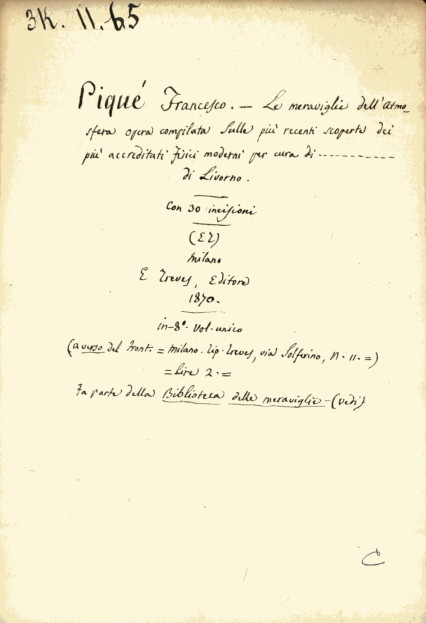 3K. 11. 65
Piqué Francesco. — Le meraviglie dell'Atmo_
sfera opera compilata sulle più recenti scoperte dei
più accreditati fisici moderni per cura di ------------
di Livorno.
Con 30 incisioni
(ET)
Milano
E Treves, Editore
1870.
in-8° vol. unico
(a verso del front. = Milano. Tip. Treves, via Solferino, N. 11. =)
= Lire 2. =
Fa parte della Biblioteca delle meraviglie - (vedi)
C